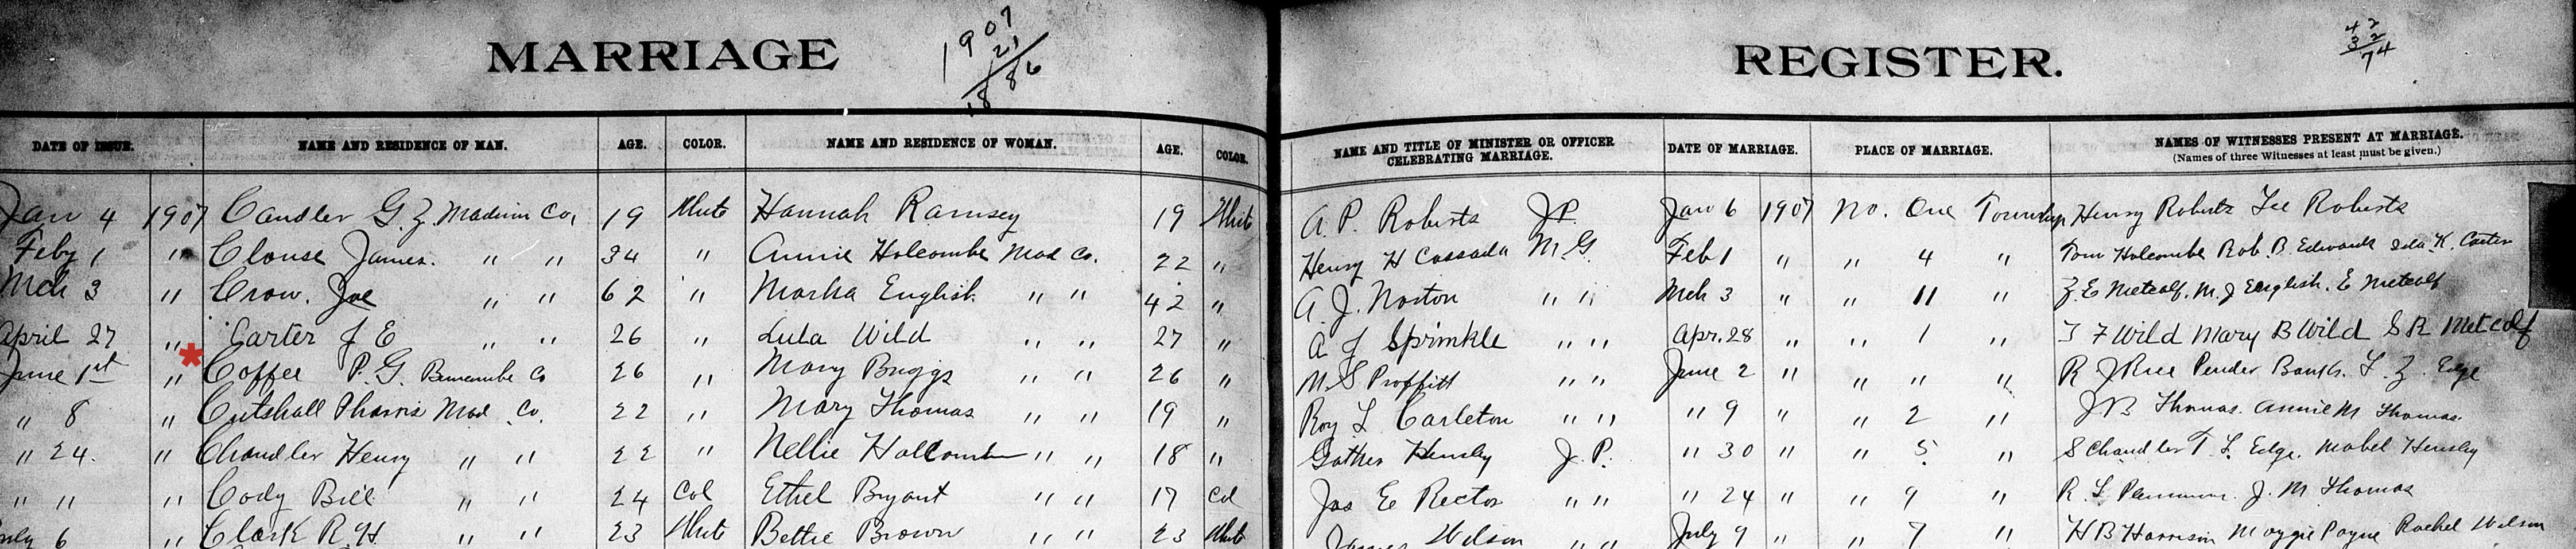 MARRIAGE REGISTER.
1907
21
1886
42
32
74
DATE OF ISSUE. NAME AND RESIDENCE OF MAN. AGE. COLOR. NAME AND RESIDENCE OF WOMAN. AGE. COLOR. NAME AND TITLE OF MINISTER OR OFFICER CELEBRATING MARRIAGE. DATE OF MARRIAGE. PLACE OF MARRIAGE. NAMES OF WITNESSES PRESENT AT MARRIAGE. (Names of three Witnesses at least must be given.)
Jan 4 1907 Candler G. Z. Madison Co, 19 White Hannah Ramsey 19 White A. P. Roberts J.P. Jan 6 1907 No. One Township Henry Roberts Lee Roberts
Feby 1 " Clouse James. " " 34 " Annie Holcombe Mad Co. 22 " Henry H Cassada M.G. Feb 1 " " 4 " Tom Holcombe Rob. B. Edwards Ida K. Carter
Mch 3 " Crow. Joe " " 62 " Marha English " " 42 " A. J. Norton " " Mch 3 " " 11 " Z. E Metcalf. M. J English. E Metcalf
April 27 " Carter J E " " 26 " Lula Wild " " 27 " A J Sprinkle " " Apr. 28 " " 1 " T F Wild Mary B Wild S R Metcalf
June 1st " * Coffee P. G. Buncombe Co 26 " Mary Briggs " " 26 " M. S Proffitt " " June 2 " " " " R J Rice Pender Banks. L. Z. Edge
" 8 " Cutshall Tharris Mad Co. 22 " Mary Thomas " " 19 " Roy L Carleton " " " 9 " " 2 " J B Thomas. Annie M Thomas.
" 24. " Chandler Henry " " 22 " Nellie Holcombe " " 18 " Gather Hensley J. P. " 30 " " 5 " S Chandler T. L. Edge. Mabel Hensley
" " " Cody Bill " " 24 Col Ethel Bryant " " 17 Col Jas E Rector " " " 24 " " 9 " R. L J. M Thomas
July 6 " Clark R. H " " 23 White Bettie Brown " " 23 White James Wilson " " July 9 " " 7 " H B Harrison Maggie Payne Rachel Wilson